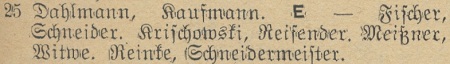 25 Dahlmann, Kaufmann. E — Fischer,
Schneider. Krischowski, Reisender. Meißner,
Witwe. Reinke, Schneidermeister.